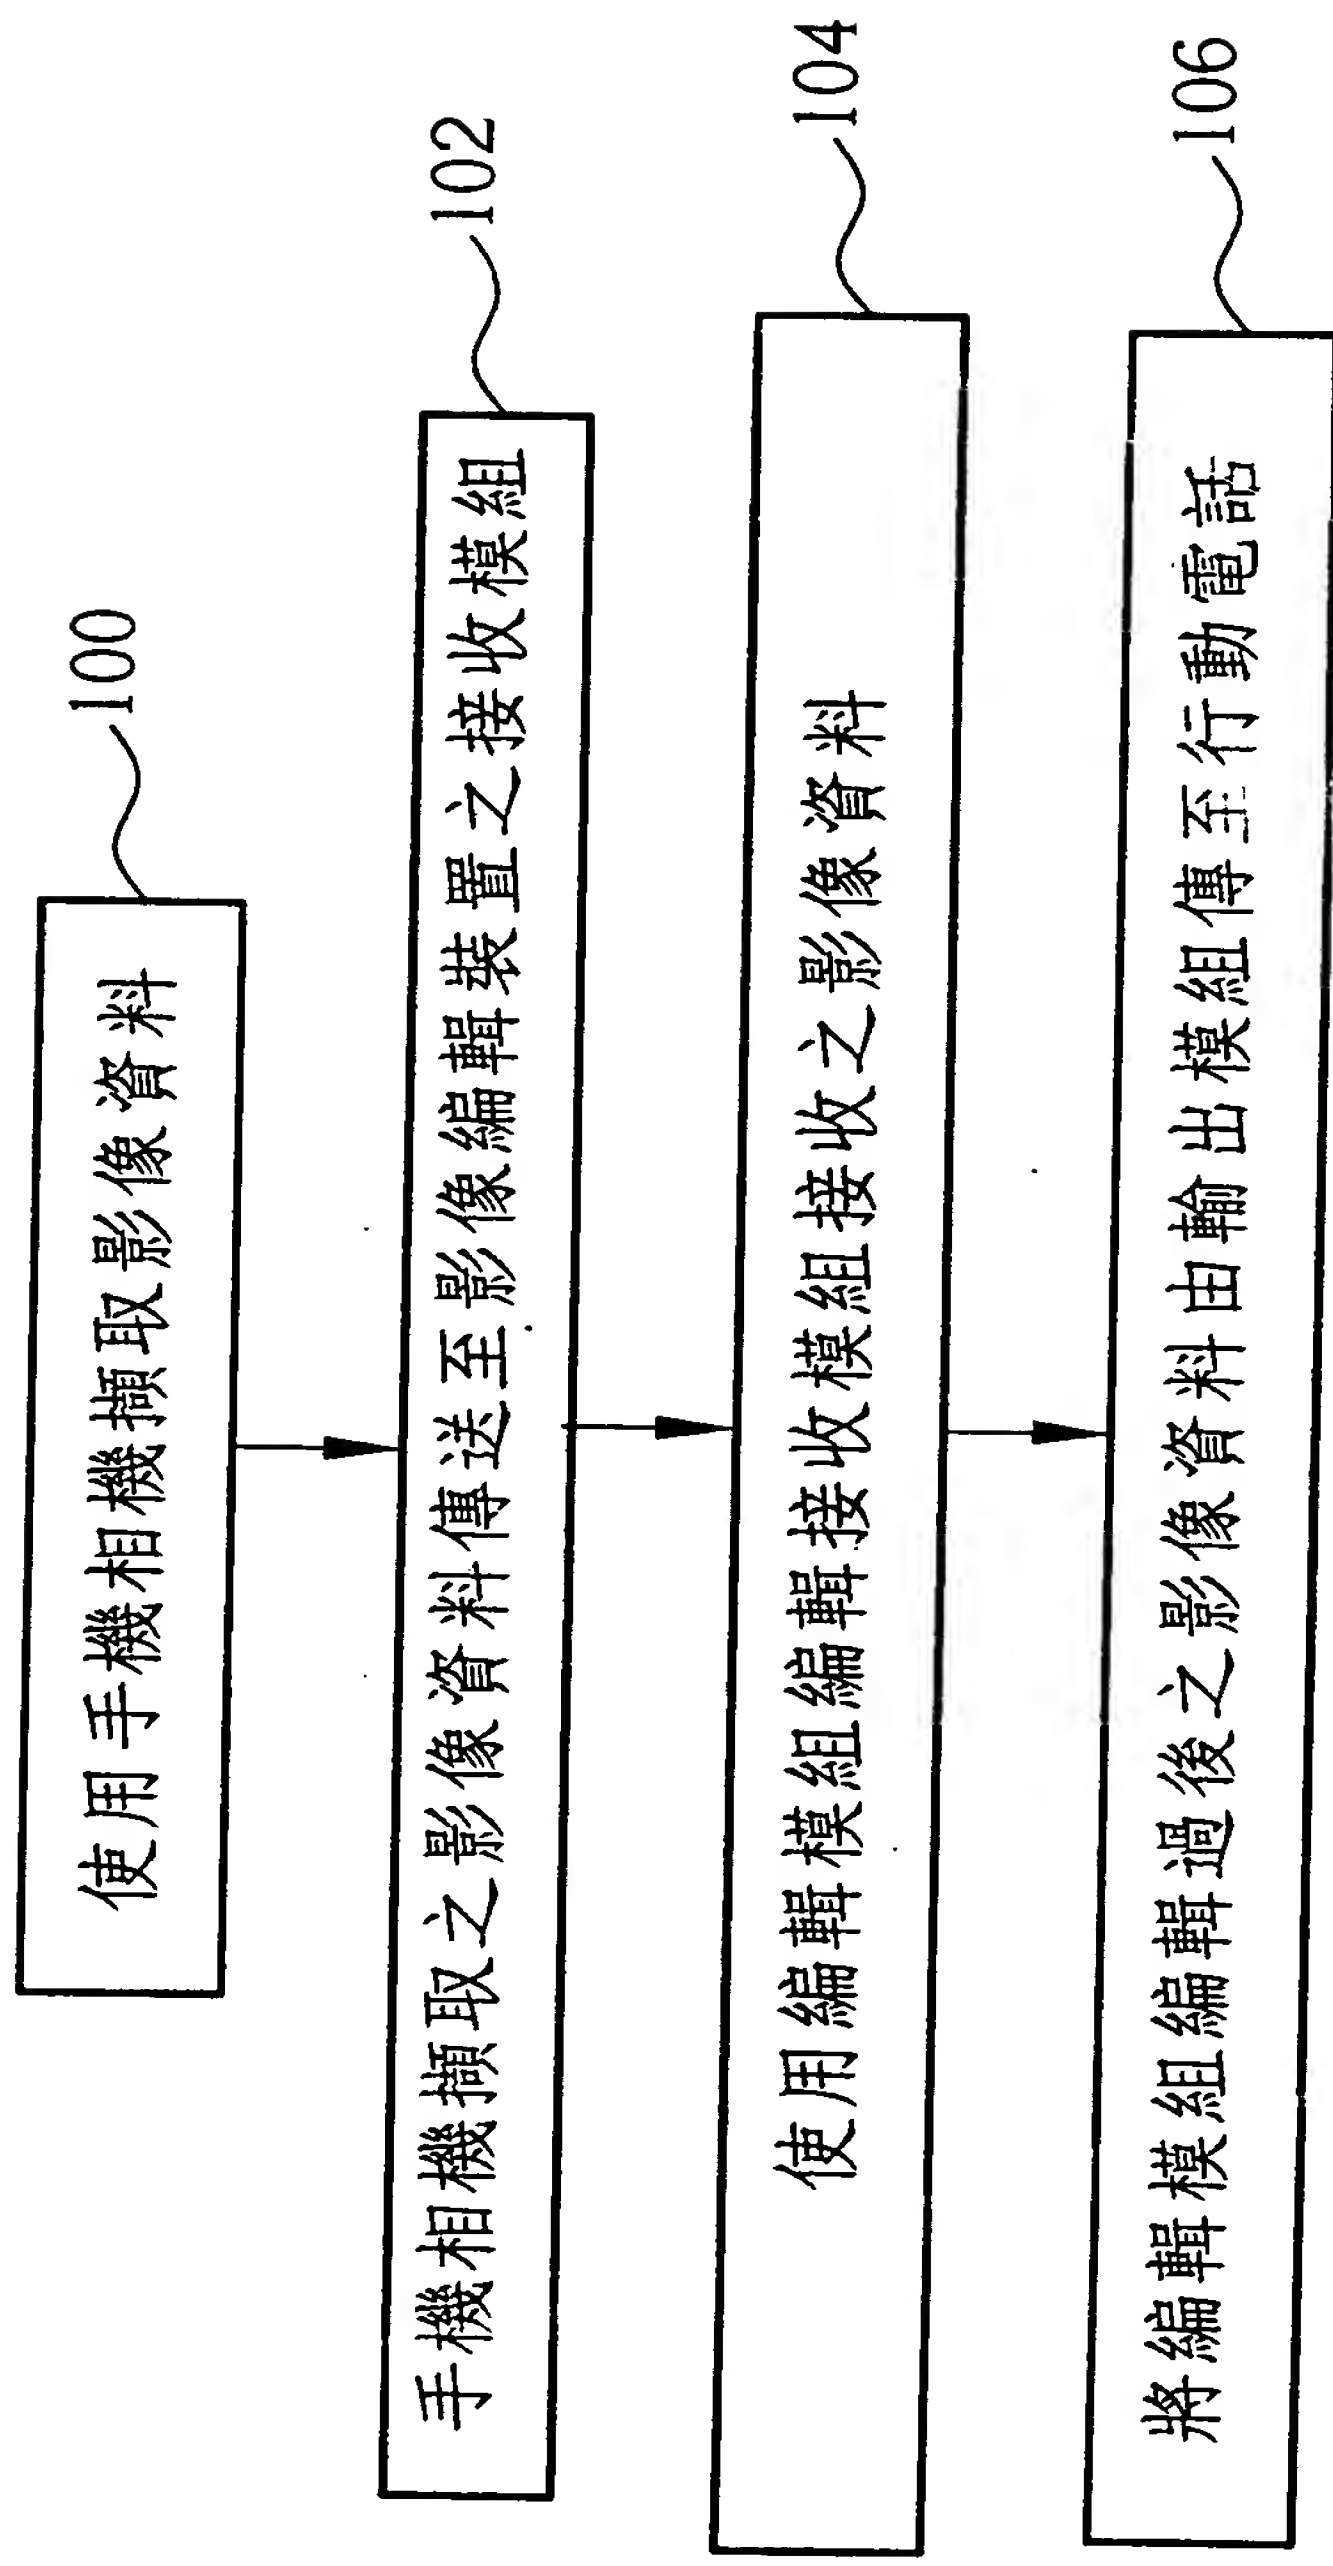 100
使用手機相機擷取影像資料
102
手機相機擷取之影像資料傳送至影像編輯裝置之接收模組
104
使用編輯模組編輯接收模組接收之影像資料
106
將編輯模組編輯過後之影像資料由輸出模組傳至行動電話